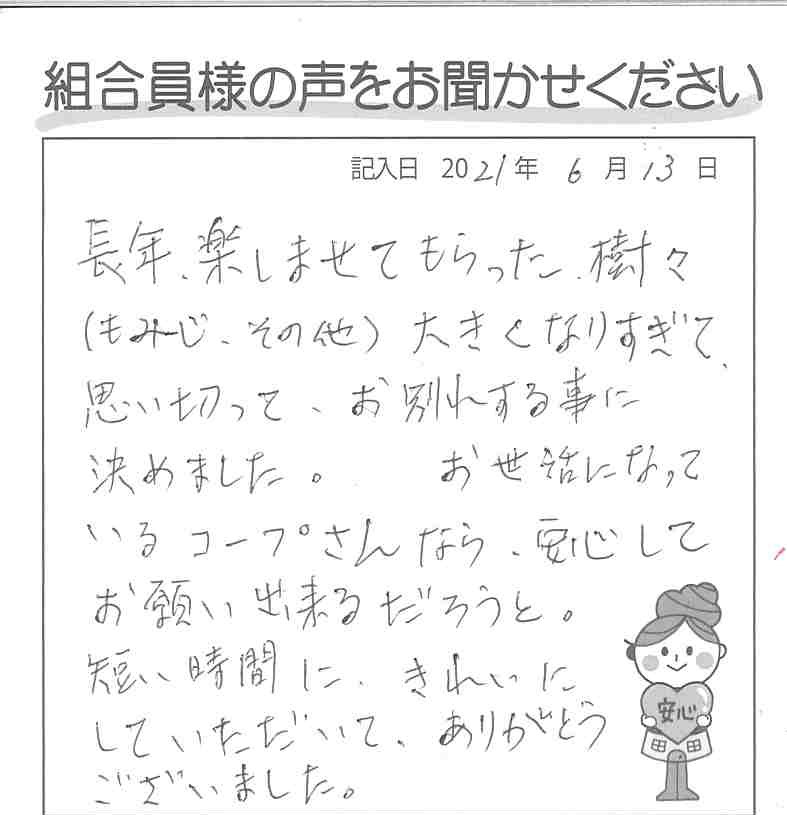 組合員様の声をお聞かせください
記入日 2021年 6月13日
長年、楽しませてもらった、樹々
(もみじ、その他)大きくなりすぎて、
思い切って、お別れする事に
決めました。 お世話になって
いるコープさんなら、安心して
お願い出来るだろうと。
短い時間に、きれいに
していただいて、ありがとう
ございました。
安心